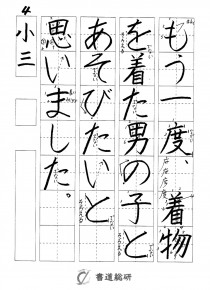 もう一度、着物
を着た男の子と
あそびたいと
思いました。
4
小三
書道総研